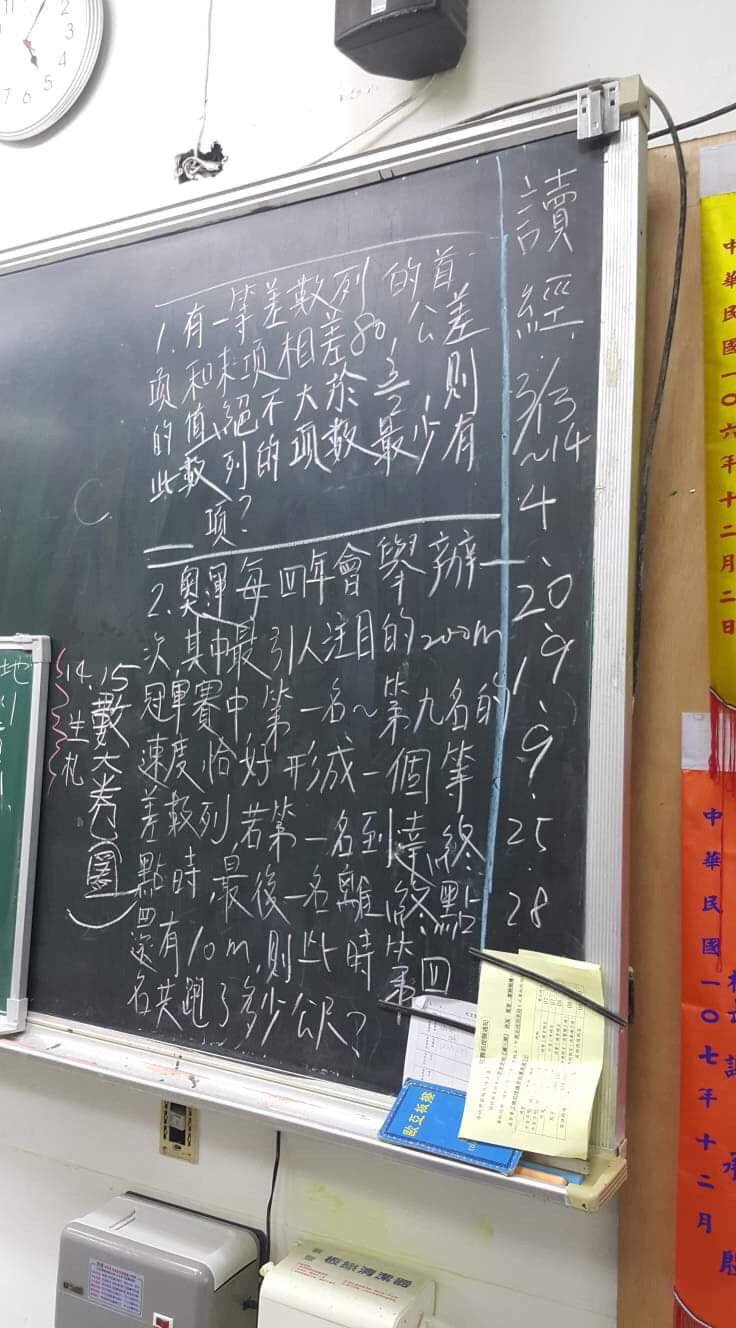 1.有一等差數列的首
項和末項相差80,公差
的值絕不大於3/2,則
此數列的項數最少有
項?
2.奧運每四年會舉辦一
次,其中最引人注目的200m
冠軍賽中,第一名~第九名的
速度恰好形成一個等
差數列,若第一名到達終
點時,最後一名離終點
還有10m,則此時第四
名共跑了多少公尺?
讀
經
3/13
~14
4
、
20
、
19
、
9
、
25
、
28
14.15
數大卷
地
歐亞板擦
板擦清潔器
中華民國一〇六年十二月二日
中華民國一〇七年十二月